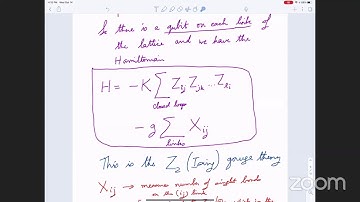 So there is a qubit on each link of
the lattice and we have the
Hamiltonian
H = -K ∑ Z_ij Z_jk ... Z_li
closed loops
- g ∑ X_ij
links
This is the Z_2 (Ising) gauge theory
X_ij → measure number of singlet bonds
on the (ij) link
zoom